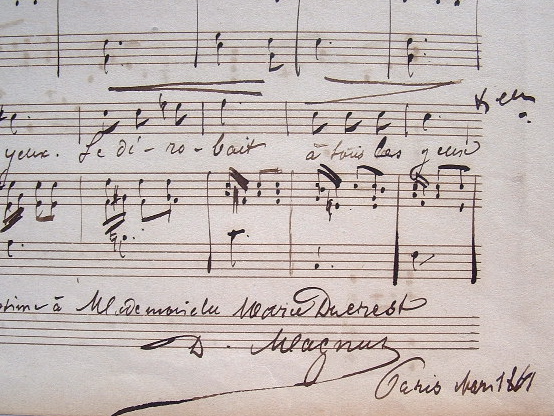 yeux. Se dé-ro-bait à tous les yeux
à Mademoiselle Maria Ducrest
D. Magnus
Paris Mars 1861